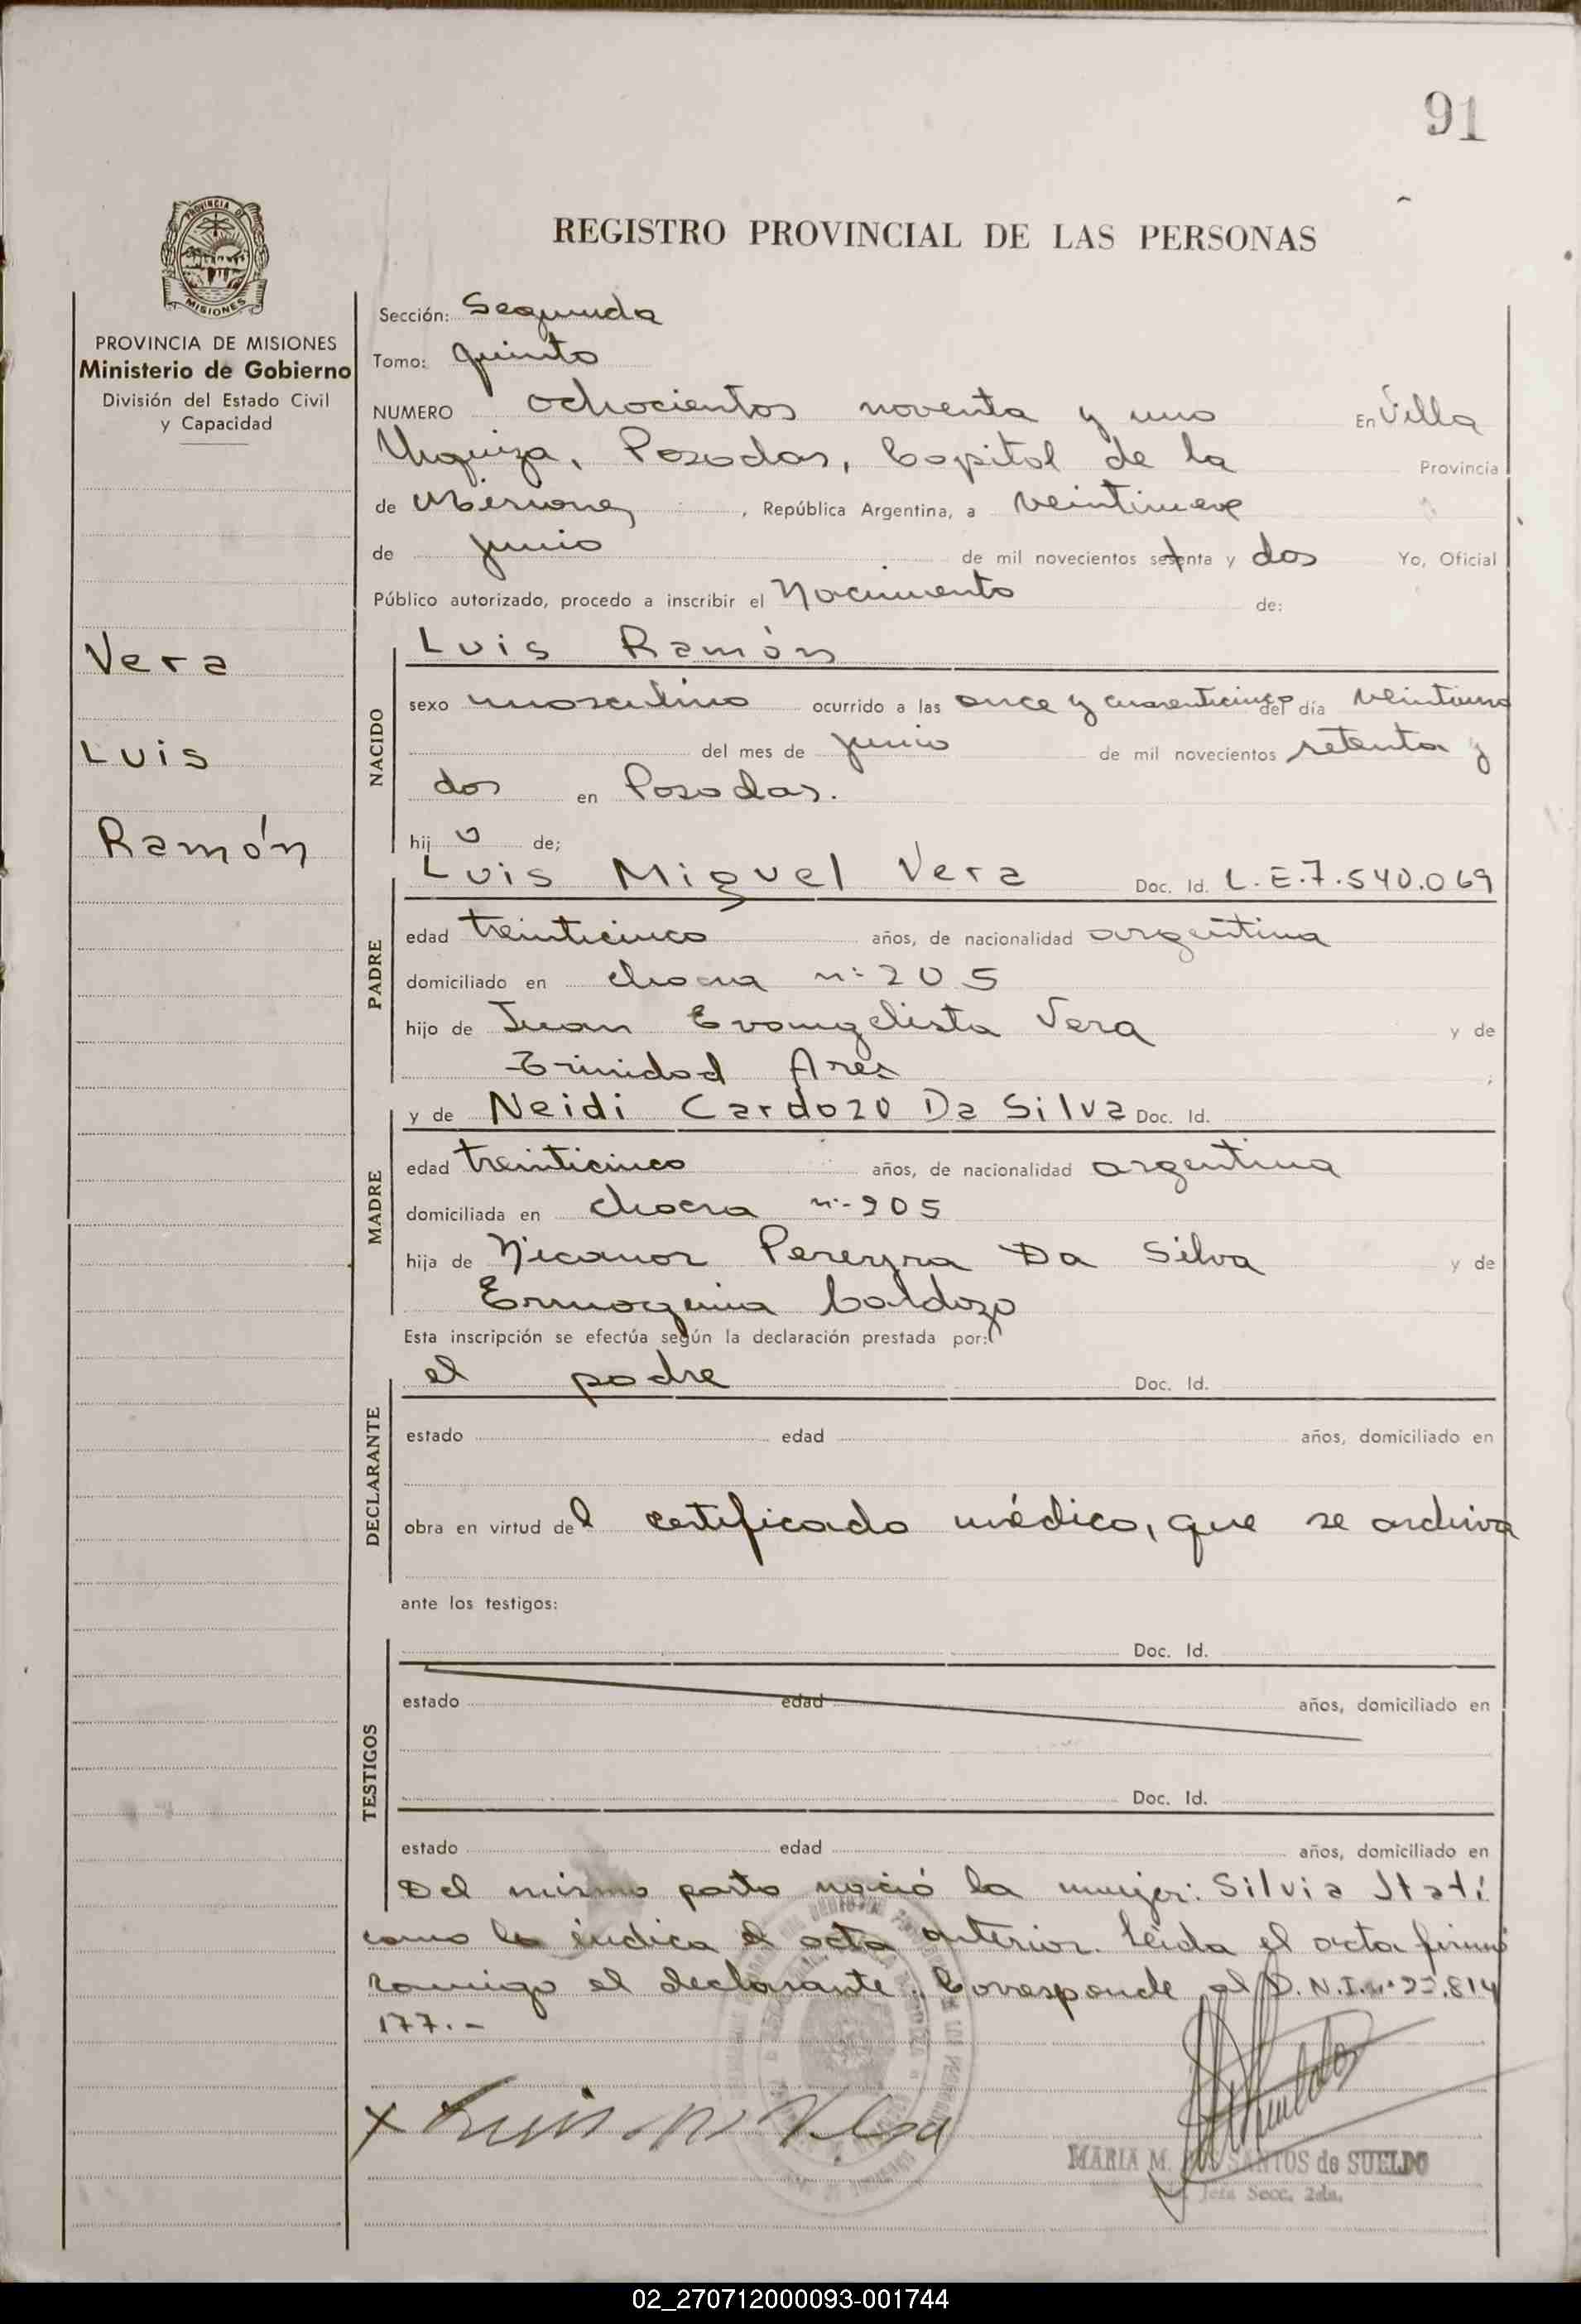 91
REGISTRO PROVINCIAL DE LAS PERSONAS
PROVINCIA DE MISIONES
Ministerio de Gobierno
División del Estado Civil
y Capacidad
Vera
Luis
Ramón
Sección: Segunda
Tomo: quinto
NUMERO ochocientos noventa y uno En Villa
Urquiza, Posadas, Capital de la Provincia
de Misiones, República Argentina, a veintinueve
de junio de mil novecientos setenta y dos Yo, Oficial
Público autorizado, procedo a inscribir el Nacimiento de:
Luis Ramón
NACIDO
sexo masculino ocurrido a las once y cuarenticinco del día veintiuno
del mes de junio de mil novecientos setenta y
dos en Posadas.
hijo de;
Luis Miguel Vera Doc. Id. L.E.7.540.069
PADRE
edad treinticinco años, de nacionalidad argentina
domiciliado en chacra nº 205
hijo de Juan Evangelista Vera y de
Trinidad
y de Neidi Cardozo Da Silva Doc. Id.
MADRE
edad treinticinco años, de nacionalidad argentina
domiciliada en chacra nº 205
hija de Nicanor Pereyra Da Silva y de
Cardozo
Esta inscripción se efectúa según la declaración prestada por:
el padre Doc. Id.
DECLARANTE
estado edad años, domiciliado en
obra en virtud del certificado médico, que se archiva
ante los testigos:
Doc. Id.
TESTIGOS
estado edad años, domiciliado en
Doc. Id.
estado edad años, domiciliado en
Del mismo parto nació la mujer: Silvia Itatí
como lo indica el acta anterior. Leída el acta firmó
conmigo el declarante. Corresponde al D.N.I. nº 22.814
177.-
x Luis M Vera
MARIA M. DOS SANTOS de SUELDO
Jefa Secc. 2da.
02_270712000093-001744